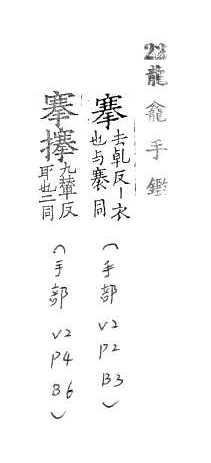 23 龍龕手鑑
搴 去乹反丨衣
也与褰同
(手部 V2 P2 B3)
搴 九輦反
耴也二同
(手部 V2 P4 B6)